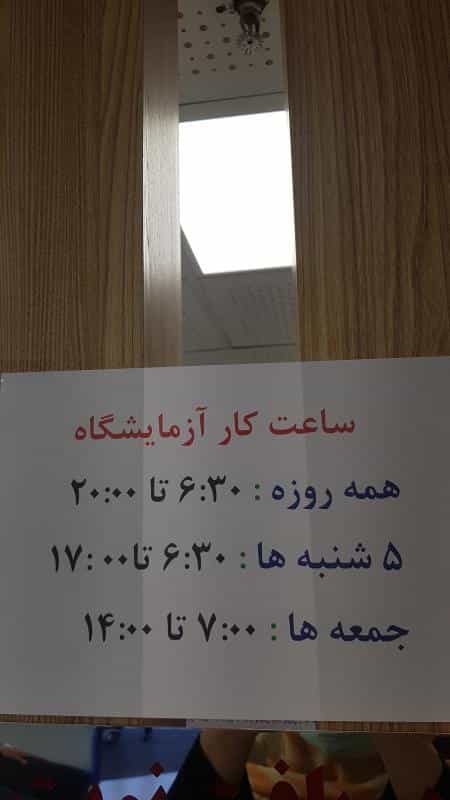 ساعت کار آزمایشگاه
همه روزه : ۶:۳۰ تا ۲۰:۰۰
۵ شنبه ها : ۶:۳۰ تا ۱۷:۰۰
جمعه ها : ۷:۰۰ تا ۱۴:۰۰